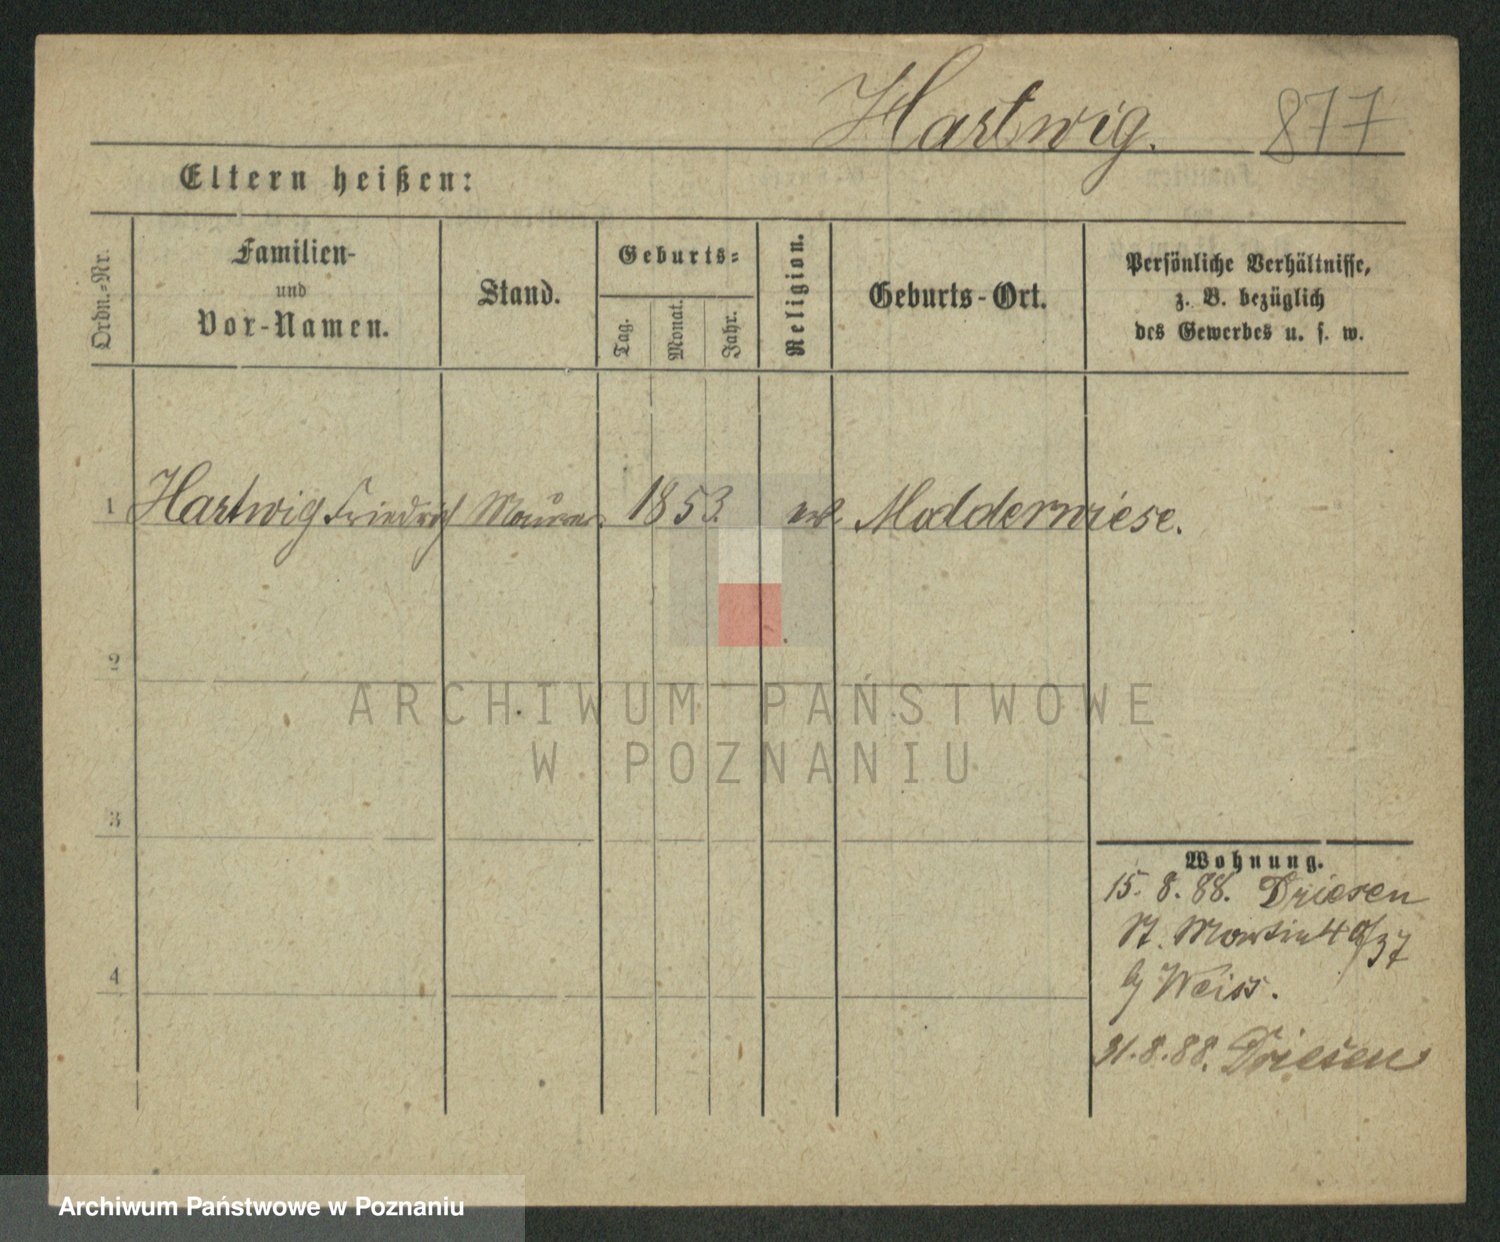 Hartwig. 877
Eltern heißen:
Ordn.-Nr.
Familien-
und
Vor-Namen.
Stand.
Geburts-
Tag.
Monat.
Jahr.
Religion.
Geburts-Ort.
Persönliche Verhältnisse,
z. B. bezüglich
des Gewerbes u. s. w.
1 Hartwig Friedrich Maurer. 1853. Modderwiese.
2
ARCHIWUM PAŃSTWOWE
W POZNANIU
3
Wohnung.
15. 8. 88. Driesen
St. Martin 4 /37
Weiss.
4
31.8.88. Driesen
Archiwum Państwowe w Poznaniu